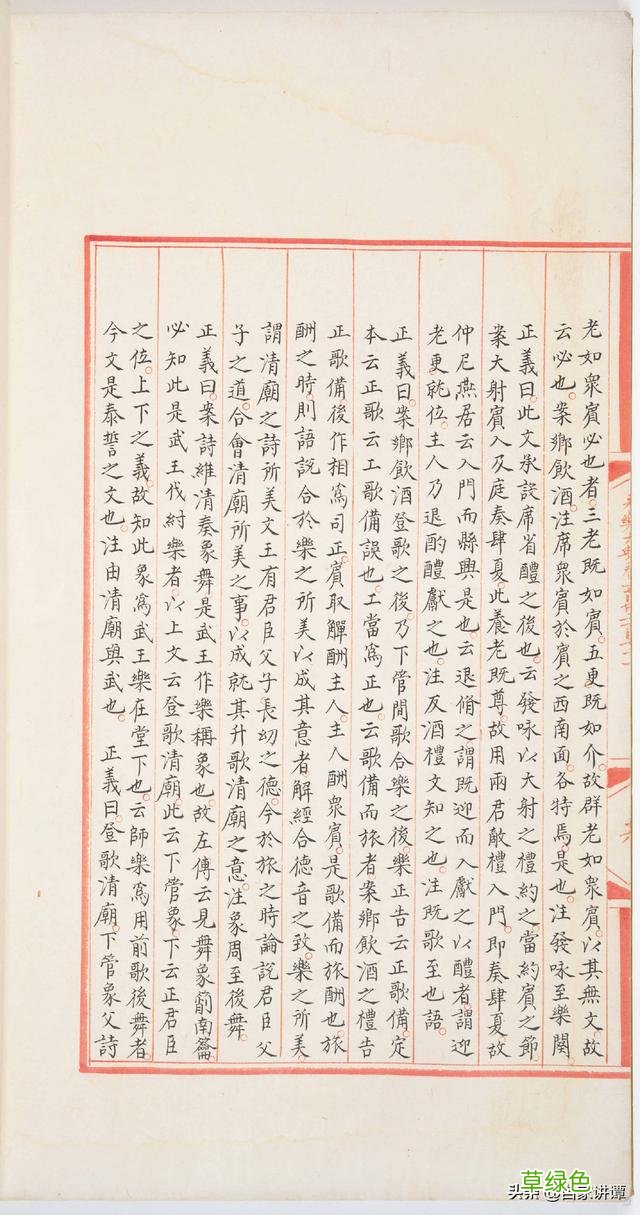 老如衆賓必也者。三老既如賓。五更既如介。故群老如衆賓。以其無文。故
云必也。案鄉飲酒。注席衆賓於賓之西南面。各特焉。是也。注發咏至樂闋。
正義曰。此文承設席省醴之後也。云發咏以大射之禮約之。當約賓之節
案大射賓入及庭奏肆夏。此養老既尊。故用兩君敵禮入門。即奏肆夏。故
仲尼燕居云入門而縣興是也。云退脩之謂既迎而入獻之以醴者。謂迎
老更就位。主人乃退酌醴獻之也。注反酒禮文知之也。注既歌至也語。
正義曰。案鄉飲酒登歌之後。乃下管間歌合樂之後。樂正告云正歌備。定
本云正歌云工歌備誤也。工當爲正也。云歌備而旅者案鄉飲酒之禮告
正歌備。後作相爲司正。賓取觶酬主人。主人酬衆賓。是歌備而旅酬也。旅
酬之時。則語說合於樂之所美以成其意者。解經合德音之致。樂之所美
謂清廟之詩所美文王有君臣父子長幼之德。今於旅之時論說君臣父
子之道。合會清廟所美之事。以成就其升歌清廟之意。注象周至後舞。
正義曰。案詩維清奏象舞是武王作樂稱象也。故左傳云見舞象箾南籥
必知此是武王伐紂樂者。以上文云登歌清廟。此云下管象。下云正君臣
之位。上下之義。故知此象爲武王樂在堂下也。云師樂爲用前歌後舞者。
今文是泰誓之文也。注由清廟與武也。 正義曰。登歌清廟。下管象父詩
草绿色
头条 @百家讲谭